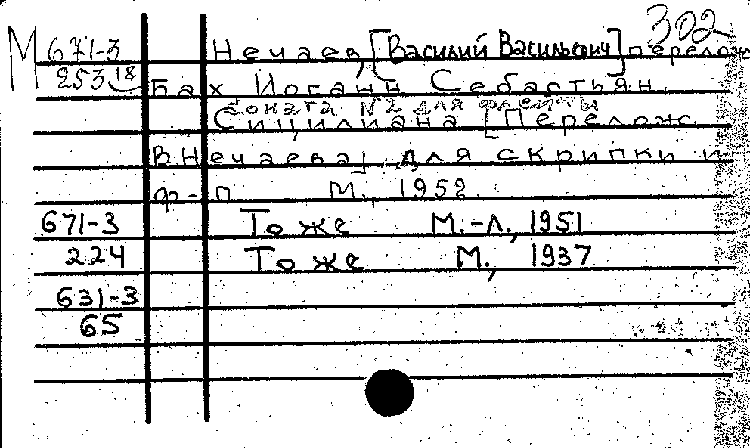 302
М 671-3 Нечаев, [Василий Васильевич] перелож
253 18 Бах Иоганн Себастьян
Соната №2 для флейты
Сицилиана [Перелож.
В Нечаева] для скрипки и
ф-п М., 1952.
671-3 То же М.-Л., 1951
224 То же М., 1937
631-3
65